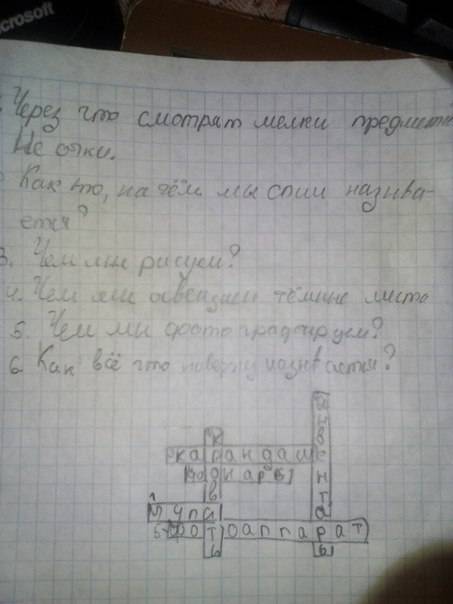 crosoft
Через что смотрят мелки предметы
Не очки.
Как то, на чём мы спим называ-
ется?
3. Чем мы рисуем?
4. Чем мы освещаем тёмные места
5. Чем мы фотографируем?
6 Как всё что называется?
карандаш
фонары
1
лупа
5 фотоаппарат
кровать